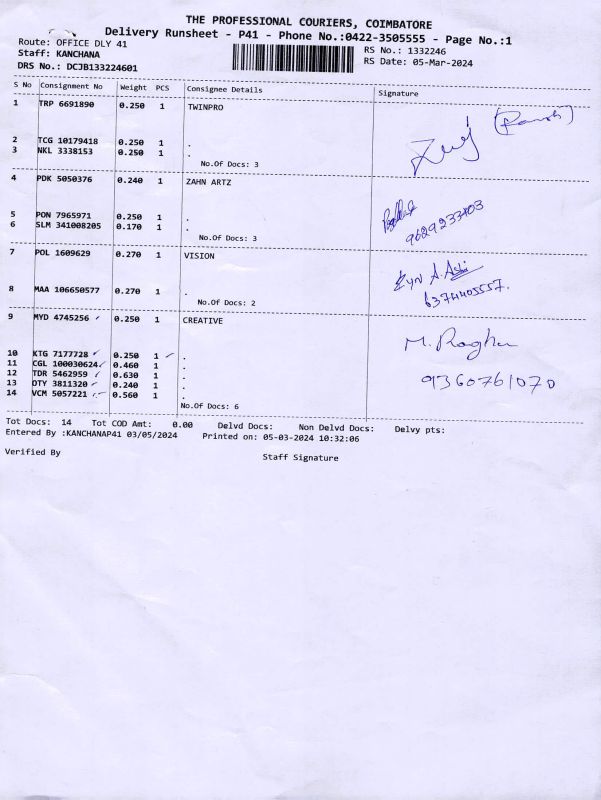 THE PROFESSIONAL COURIERS, COIMBATORE
Delivery Runsheet - P41 - Phone No.:0422-3505555 - Page No.:1
Route: OFFICE DLY 41
RS No.: 1332246
Staff: KANCHANA
RS Date: 05-Mar-2024
DRS No.: DCJB133224601
S No Consignment No Weight PCS Consignee Details Signature
1 TRP 6691890 0.250 1 TWINPRO
2 TCG 10179418 0.250 1 .
3 NKL 3338153 0.250 1 .
No.Of Docs: 3
4 PDK 5050376 0.240 1 ZAHN ARTZ
5 PON 7965971 0.250 1 .
6 SLM 341008205 0.170 1 .
9629233403
No.Of Docs: 3
7 POL 1609629 0.270 1 VISION
8 MAA 106650577 0.270 1 .
6374405557.
No.Of Docs: 2
9 MYD 4745256 0.250 1 CREATIVE
M. Raghu
10 KTG 7177728 0.250 1 .
11 CGL 100030624 0.460 1 .
12 TDR 5462959 0.630 1 .
13 OTY 3811320 0.240 1 .
9360761070
14 VCM 5057221 0.560 1 .
No.Of Docs: 6
Tot Docs: 14 Tot COD Amt: 0.00 Delvd Docs: Non Delvd Docs: Delvy pts:
Entered By :KANCHANAP41 03/05/2024 Printed on: 05-03-2024 10:32:06
Verified By
Staff Signature